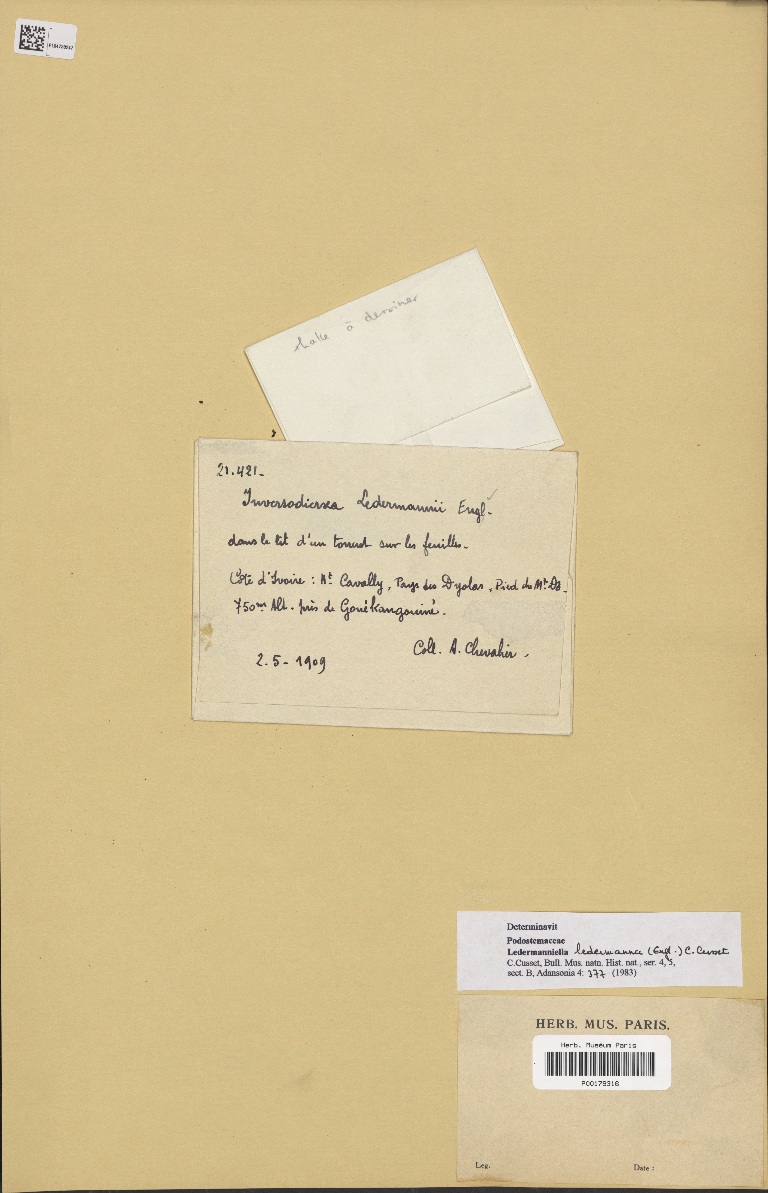 à dessiner
21.421-
Inversodicraea Ledermannii Engl.
dans le lit d'un torrent sur les feuilles.
Côte d'Ivoire : Ht Cavally, Pays des Dyolas, Pied du Mt Dô.
750m Alt. près de Gouékangouiné.
Coll. A. Chevalier.
2-5-1909
Determinavit
Podostemaceae
Ledermanniella ledermannii (Engl.) C. Cusset
C.Cusset, Bull. Mus. natn. Hist. nat., ser. 4, 5,
sect. B, Adansonia 4: 377 (1983)
HERB. MUS. PARIS.
Herb. Muséum Paris
P00179316
Leg.
Date :